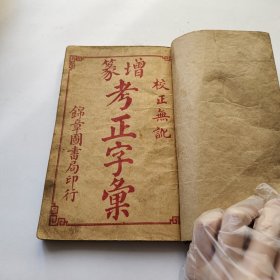 校正無訛
增篆
考正字彙
錦章圖書局印行